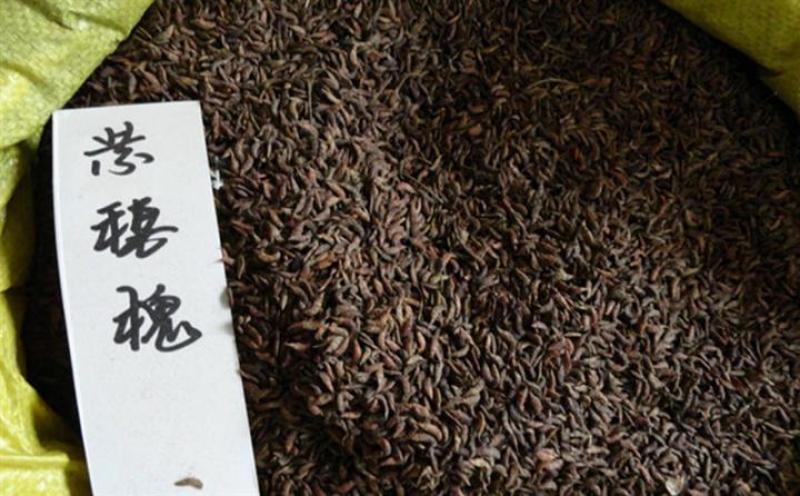 紫
穗
槐